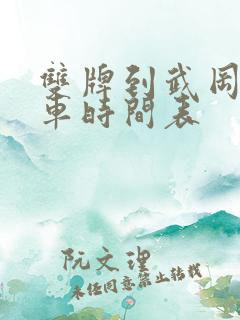 雙牌到武岡
車時間表
阮文理
未经同意禁止转载